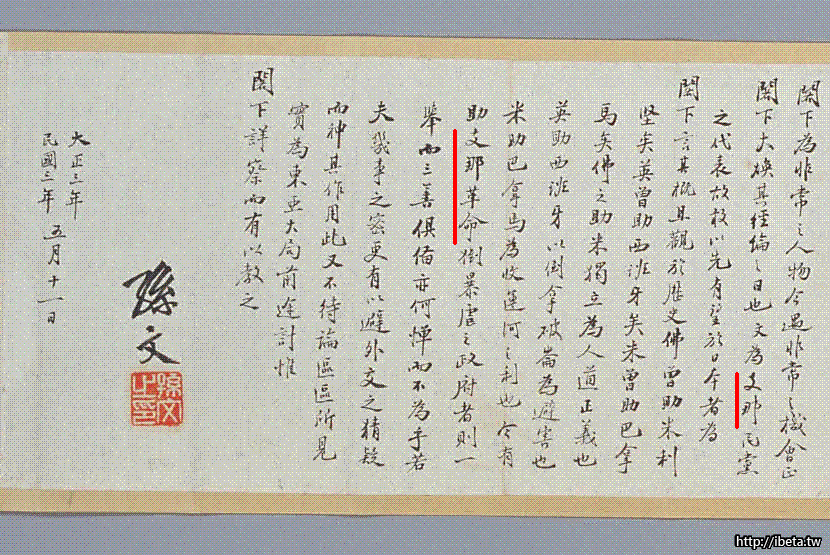 閣下為非常之人物今遇非常之機會正
閣下大煥其經綸之日也文為支那民黨
之代表故敢以先有望於日本者為
閣下言其概且觀於歷史佛曾助米利
堅矣英曾助西班牙矣米曾助巴拿
馬矣佛之助米獨立為人道正義也
英助西班牙以倒拿破崙為避害也
米助巴拿馬為收運河之利也今有
助支那革命倒暴虐之政府者則一
舉而三善俱備亦何憚而不為乎若
夫幾事之密更有以避外交之猜疑
而神其作用此又不待論區區所見
實為東亞大局前途計惟
閣下詳察而有以教之
孫文
孫文之印
大正三年
民國三年 五月十一日
http://ibeta.tw